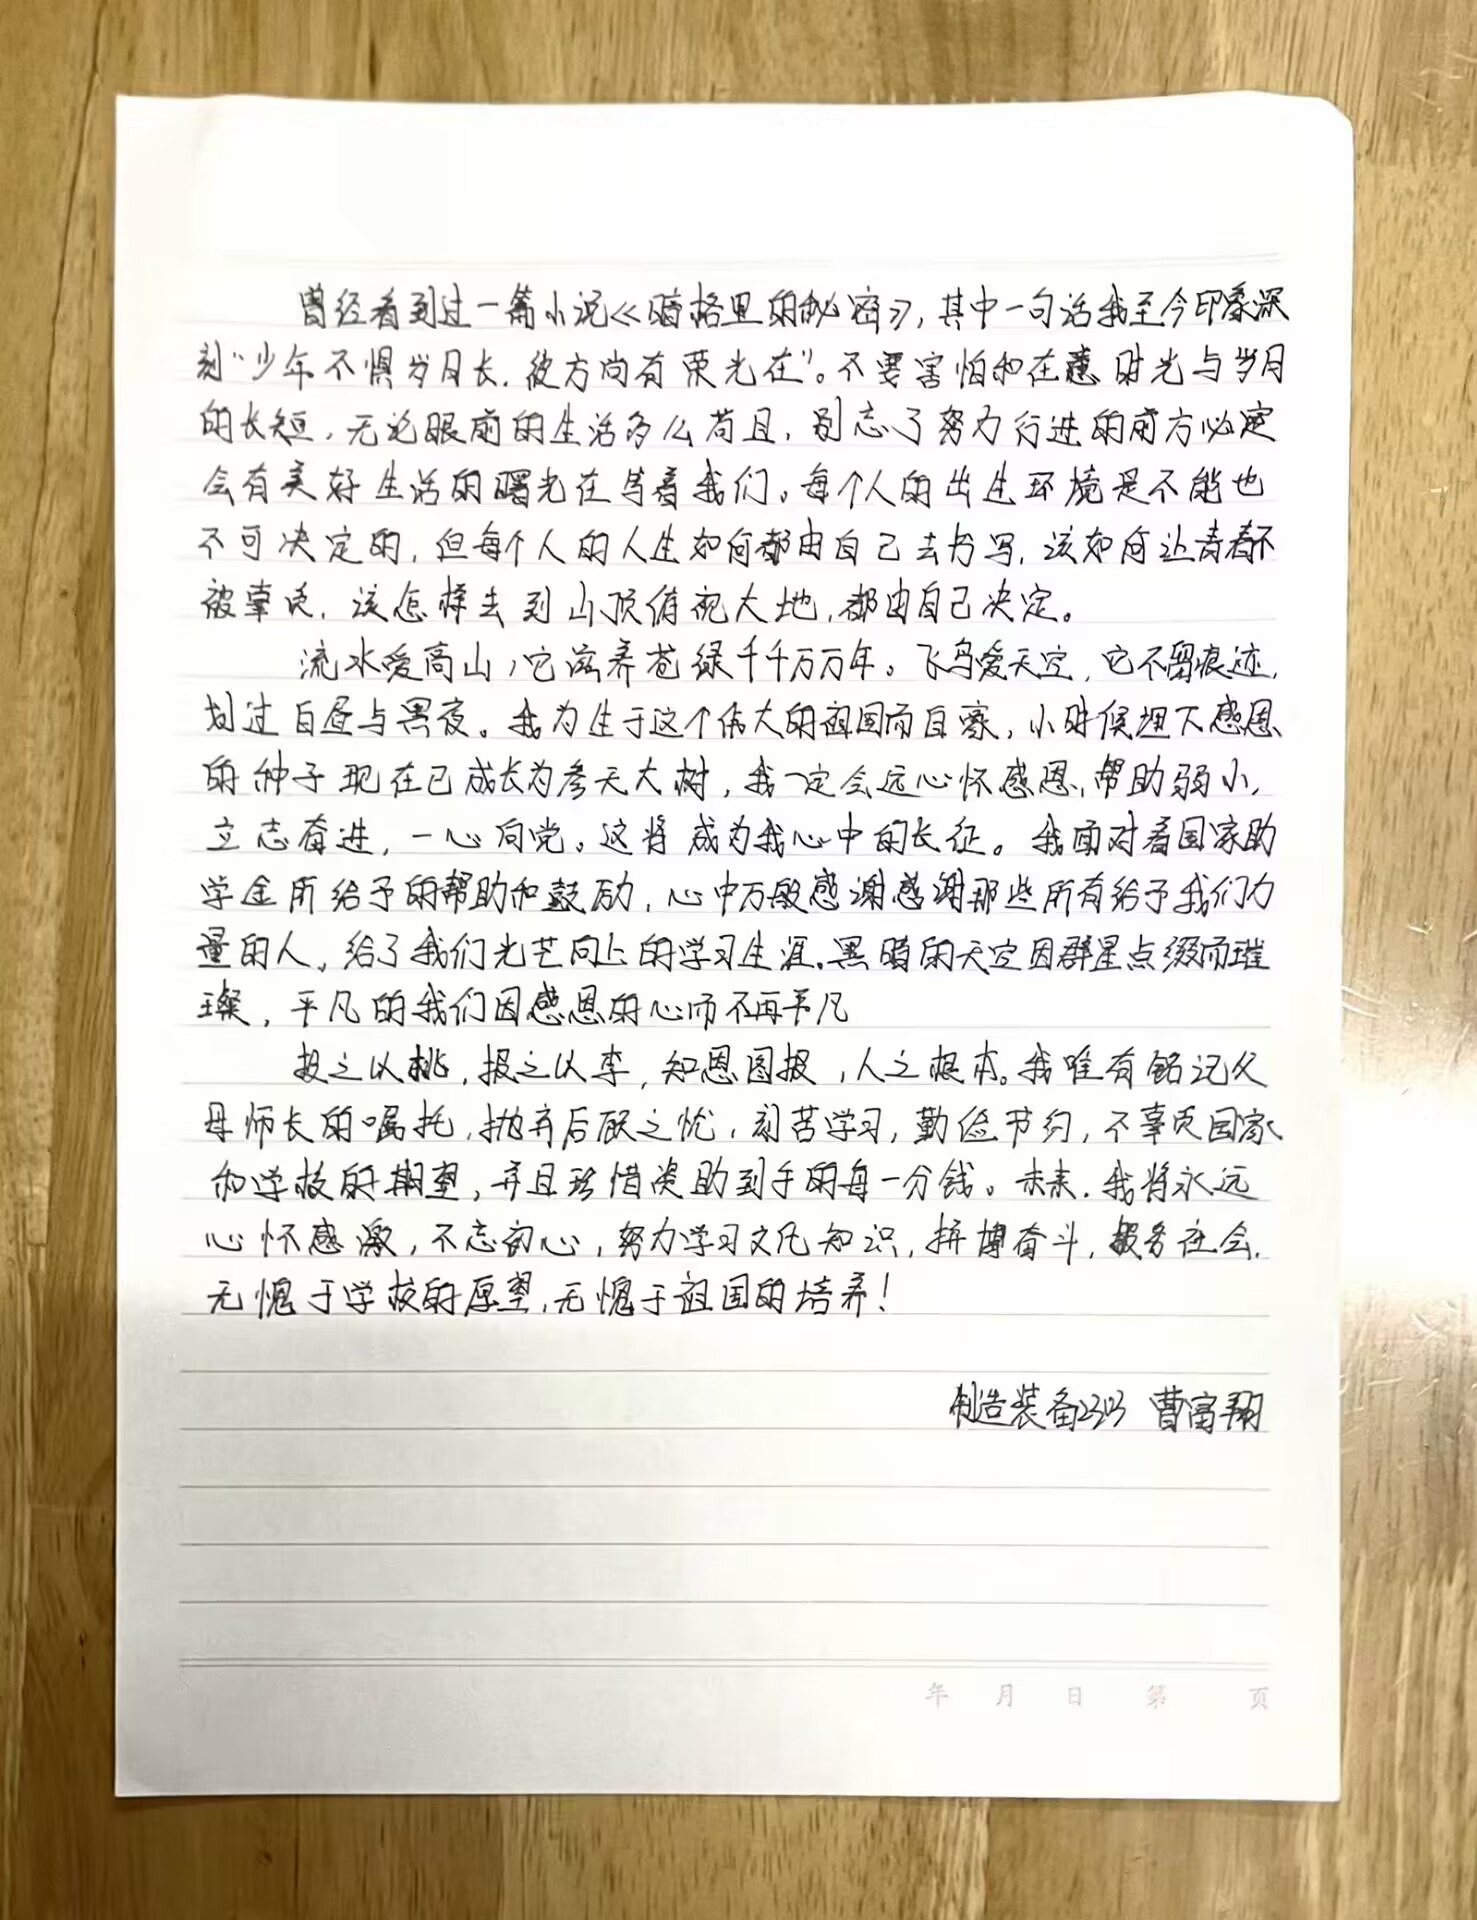 曾经看到过一篇小说《暗格里的秘密》,其中一句话我至今印象深
刻“少年不惧岁月长,彼方尚有荣光在”。不要害怕和在意时光与岁月
的长短,无论眼前的生活多么苟且,别忘了努力行进的前方必定
会有美好生活的曙光在等着我们。每个人的出生环境是不能也
不可决定的,但每个人的人生如何都由自己去书写,该如何让青春不
被辜负,该怎样去到山顶俯视大地,都由自己决定。
流水爱高山,它滋养苍绿千千万万年。飞鸟爱天空,它不留痕迹,
划过白昼与黑夜。我为生于这个伟大的祖国而自豪,小时候埋下感恩
的种子现在已成长为参天大树,我一定会远心怀感恩,帮助弱小,
立志奋进,一心向党。这将成为我心中的长征。我面对着国家助
学金所给予的帮助和鼓励,心中万敏感谢感谢那些所有给予我们力
量的人,给了我们光芒向上的学习生涯.黑暗的天空因群星点缀而璀
璨,平凡的我们因感恩的心而不再平凡
投之以桃,报之以李,知恩图报,人之根本。我唯有铭记父
母师长的嘱托,抛弃后顾之忧,刻苦学习,勤俭节约,不辜负国家
和学校的期望,并且珍惜资助到手的每一分钱。未来,我将永远
心怀感激,不忘初心,努力学习文化知识,拼搏奋斗,服务社会,
无愧于学校的厚望,无愧于祖国的培养!
制造装备2313 曹富翔
年 月 日 第 页